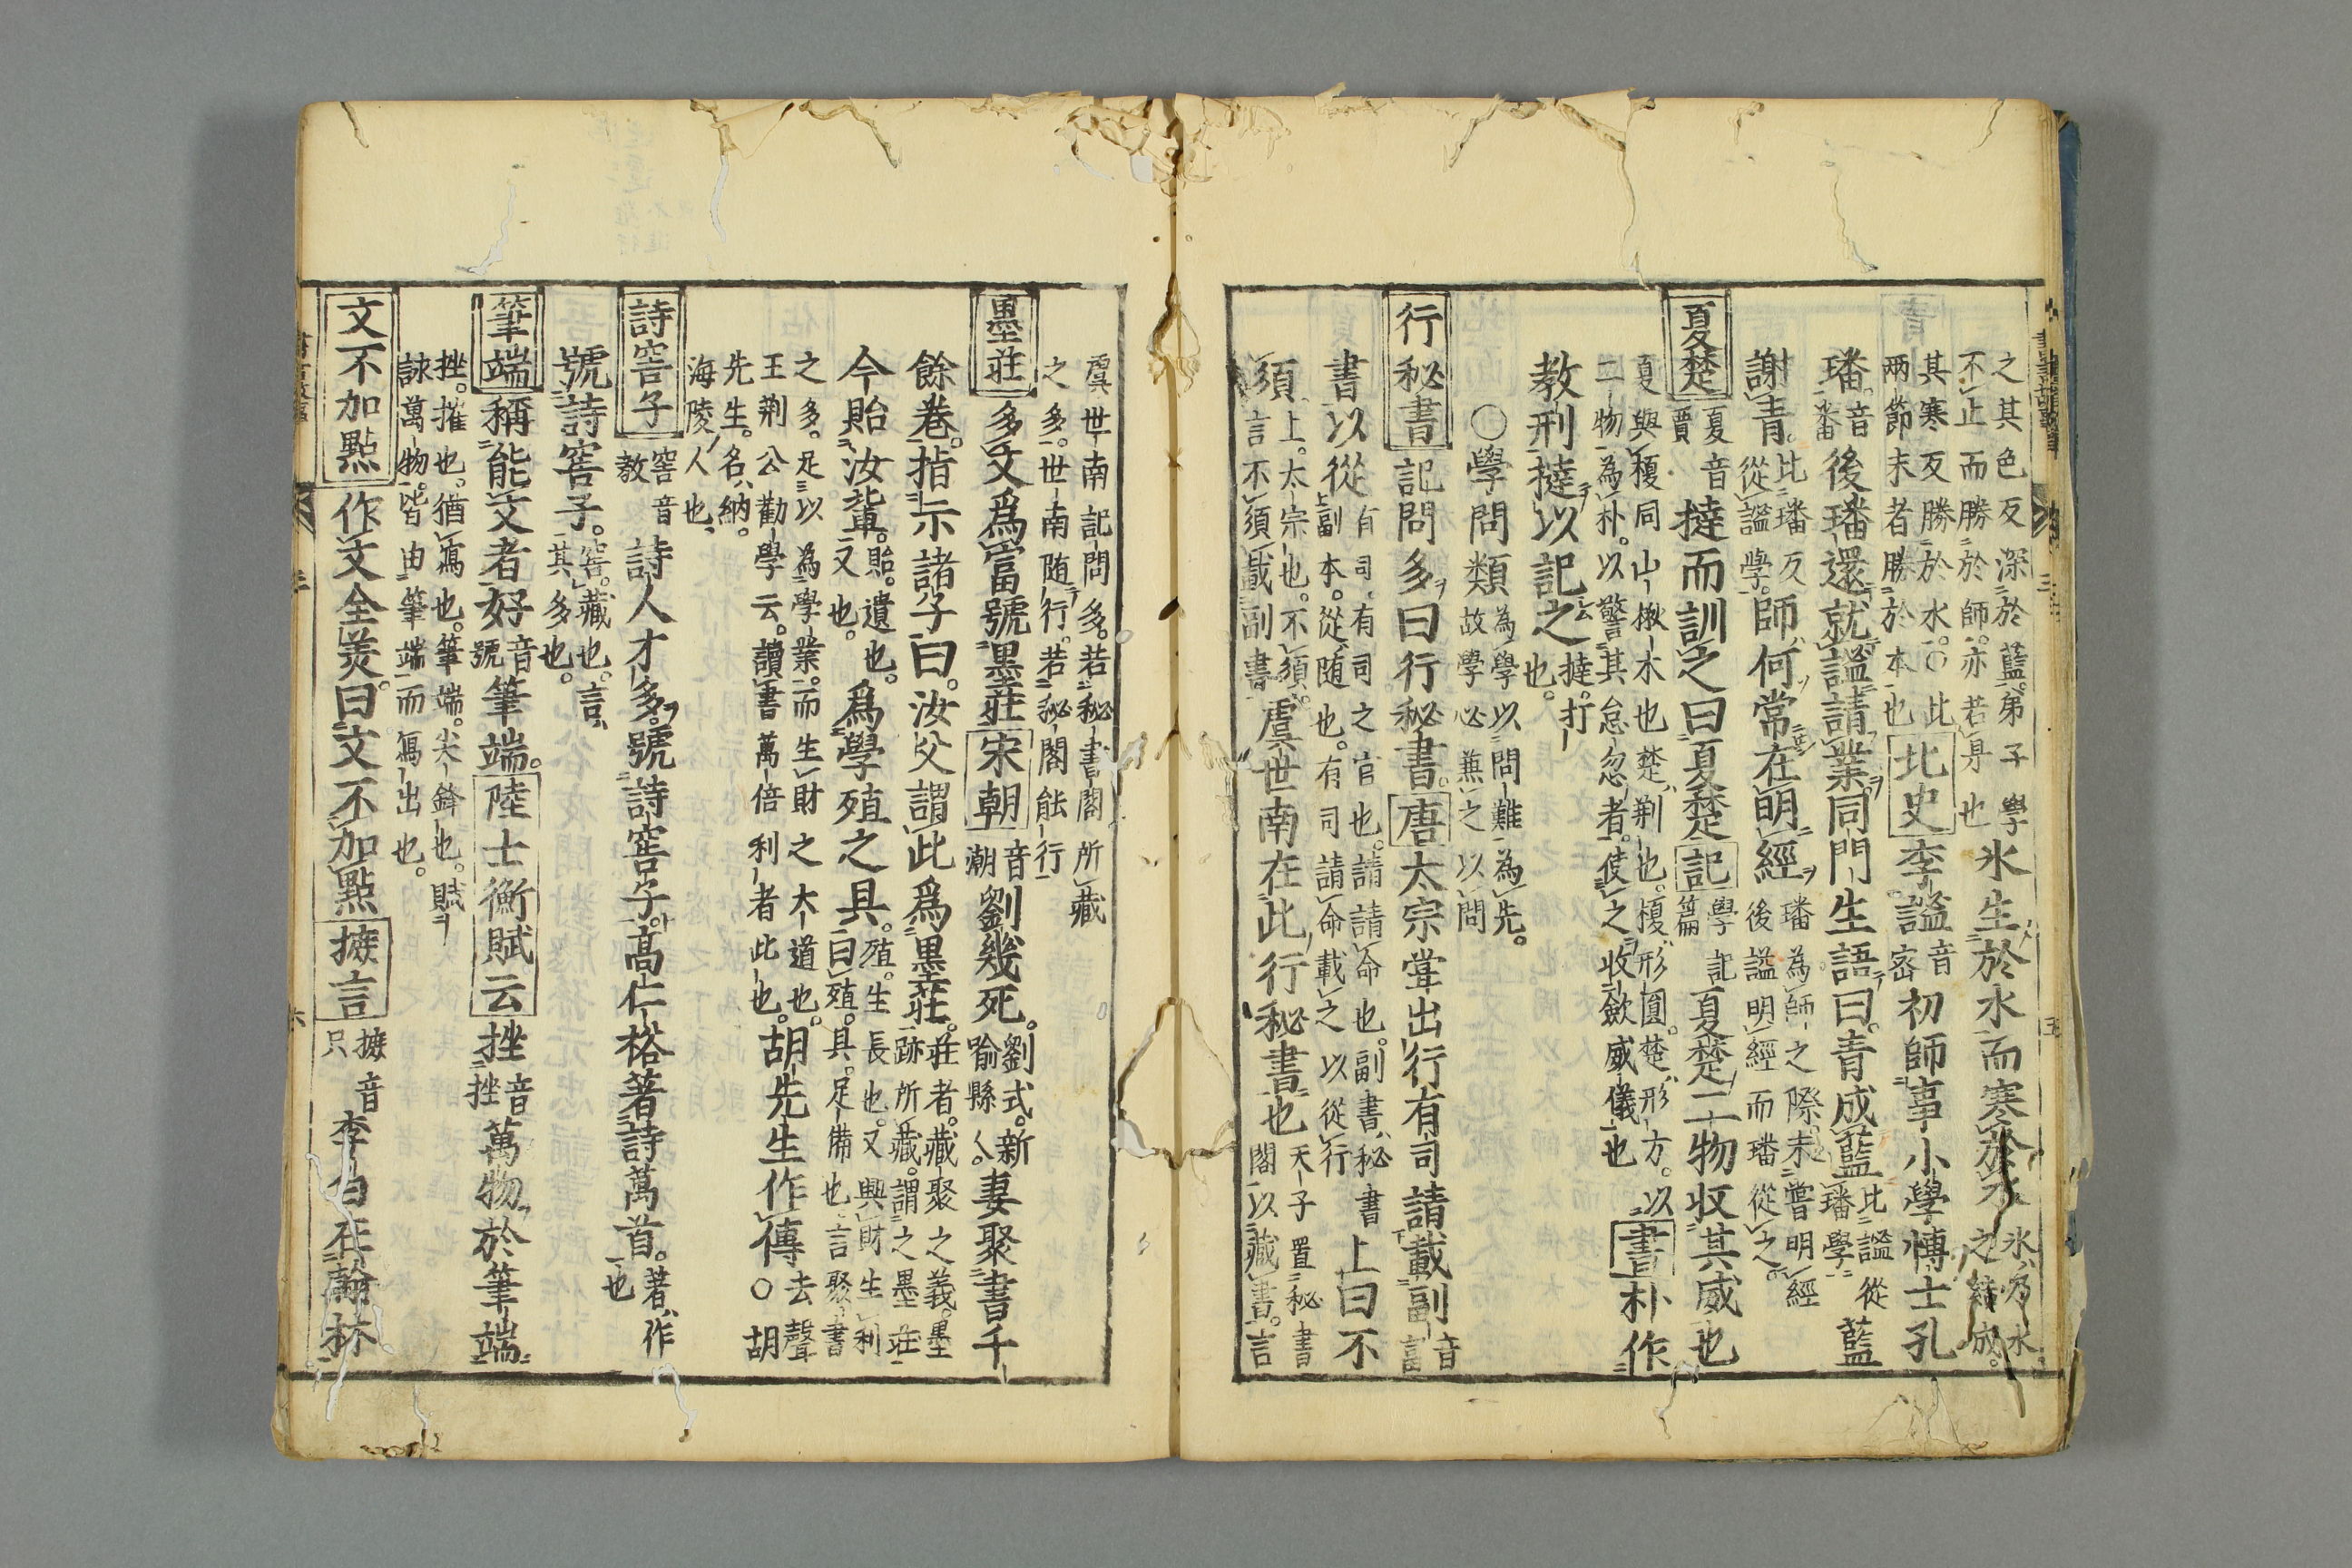 之其色反深於藍弟子學
不止而勝於師亦若身也
氷生於水而寒於水
氷乃水
之結成
其寒反勝於水○此
两節末者勝於本也
北史李謐
音
密
初師事小學博士孔
璠
音
番
後璠還就謐請業同門生語曰青成藍
比謐從
璠學
藍
謝青
比璠反
從謐學
師何常在明經
璠為師之際未嘗明經
後謐明經而璠從之
夏楚
夏音
賈
撻而訓之曰夏楚記
學記
篇
夏楚二物収其威也
夏與榎同山楸木也楚荆也榎形圓楚形方以
二物為朴以警其怠忽者使之收斂威儀也
書朴作
教刑撻以記之
撻打
也
○學問類
為學以問難為先
故學必兼之以問
行秘書記問多曰行秘書唐太宗甞出行有司請載副
音
富
書以從
有司有司之官也請請命也副書秘書
上副本從随也有司請命載之以從行
上曰不
須
上太宗也不須
言不須載副書
虞世南在此行秘書也
天子置秘書
閣以藏書言
虞世南記問多若秘書閣所藏
之多世南随行若秘閣能行
墨莊多文爲富號墨莊宋朝
音
潮
劉幾死
劉式新
喻縣人
妻聚書千
餘卷指示諸子曰汝父謂此爲墨莊
莊者藏聚之義墨
跡所藏謂之墨莊
今貽汝輩
貽遺也
又也
爲學殖之具
殖生長也又興財生利
曰殖具足備也言聚書
之多足以為學業而生財之大道也
王荆公勸學云讀書萬倍利者此也
胡先生作傳
去聲
○胡
先生名納
海陵人也
詩窖子
窖音
教
詩人才多號詩窖子高仁裕著詩萬首
著作
也
號詩窖子
窖藏也言
其多也
筆端稱能文者好
音
號
筆端陸士衡賦云挫
音
挫
萬物於筆端
挫摧也猶寫也筆端尖鋒也賦
詠萬物皆由筆端而寫出也
文不加點作文全美曰文不加點摭言
摭音
只
李白在翰林